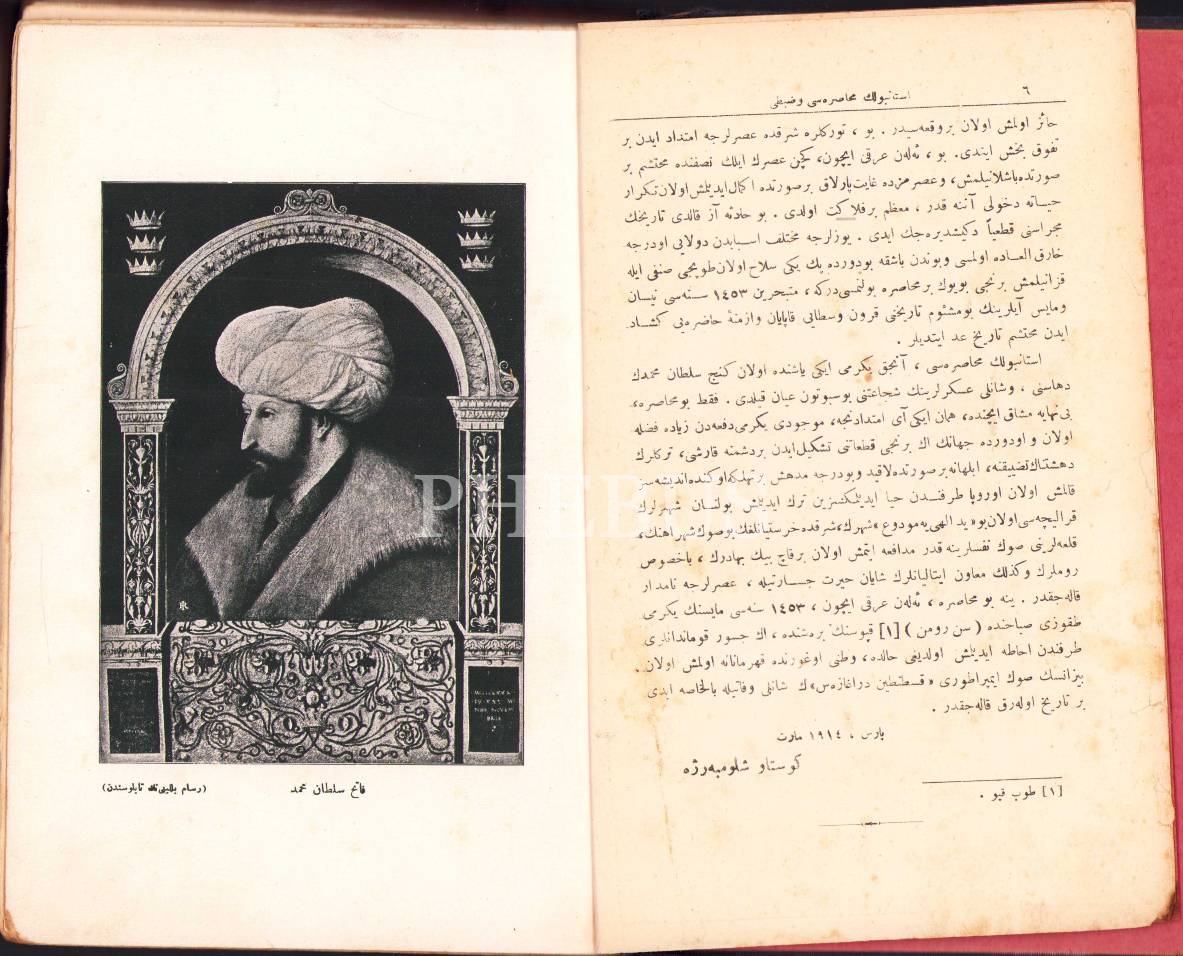 ٦
استانبولك محاصره‌سی و ضبطی
حائز اولمش اولان بر وقعه‌سیدر . بو ، تورکلره شرقده عصرلرجه امتداد ایدن بر
تفوق بخش ایتدی. بو ، ئه‌له‌ن عرقی ایچون، کچن عصرك ایلك نصفنده محتشم بر
صورتده باشلانیلمش، وعصرمزده غایت پارلاق برصورتده اکمال ایدیلمش اولان تکرار
حیاته دخولی آننه قدر ، معظم برفلاکت اولدی . بو حادثه آز قالدی تاریخك
مجراسنی قطعیاً دکیشدیره‌جك ایدی . یوزلرجه مختلف اسبابدن دولایی اودرجه
خارق العاده اولمسی وبوندن باشقه بودورده پك یکی سلاح اولان طوپجی صنفی ایله
قزانیلمش برنجی بویوك بر محاصره بولنمسی‌درکه ، متبحرین ١٤٥٣ سنه‌سی نیسان
ومایس آیلرینك بومشئوم تاریخنی قرون وسطایی قاپایان وازمنهٔ حاضره‌یی کشاد
ایدن محتشم تاریخ عد ایتدیلر .
استانبولك محاصره‌سی ، آنجق یکرمی ایکی یاشنده اولان کنج سلطان محمدك
دهاسنی ، وشانلی عسکرلرینك شجاعتنی بوسبوتون عیان قیلدی . فقط بومحاصره،
بی‌نهایه مشاق ایچنده، همان ایکی آی امتدادنجه، موجودی یکرمی‌دفعه‌دن زیاده فضله
اولان و اودورده جهانك اك برنجی قطعاتنی تشکیل‌ایدن بردشمنه قارشی، ترکلرك
دهشتناك تضییقنه، ابلهانه برصورتده لاقید وبودرجه مدهش برتهلکه اوکنده اندیشه‌سز
قالمش اولان اوروپا طرفندن حیا ایدیلمکسزین ترك ایدیلمش بولنان شهرلرك
قرالیچه‌سی اولان بو « ید الهی‌یه مودوع » شهرك، شرقده خرستیانلغك بوصوك شهراهنك،
قلعه‌لرینی صوك نفسلرینه قدر مدافعه ایتمش اولان برقاچ بیك بهادرك ، باخصوص
روملرك وکذلك معاون ایتالیانلرك شایان حیرت جسارتیله ، عصرلرجه نامدار
قاله‌جقدر . ینه بو محاصره ، ئه‌له‌ن عرقی ایچون ، ١٤٥٣ سنه‌سی مایسنك یکرمی
طقوزی صباحنده ( سن رومن ) [١] قپوسنك بره‌شنده ، اك جسور قوماندانلری
طرفندن احاطه ایدیلمش اولدیغی حالده، وطنی اوغورنده قهرمانانه اولمش اولان .
بیزانسك صوك ایمپراطوری « قسطنطین دراغازه‌س »ك شانلی وفاتیله بالخاصه ابدی
بر تاریخ اوله‌رق قاله‌جقدر .
پارس ، ١٩١٤ مارت
کوستاو شلومبه‌رژه
[١] طوپ قپو .
فاتح سلطان محمد
(رسام بللینی‌نك تابلوسندن)
PHEBUS